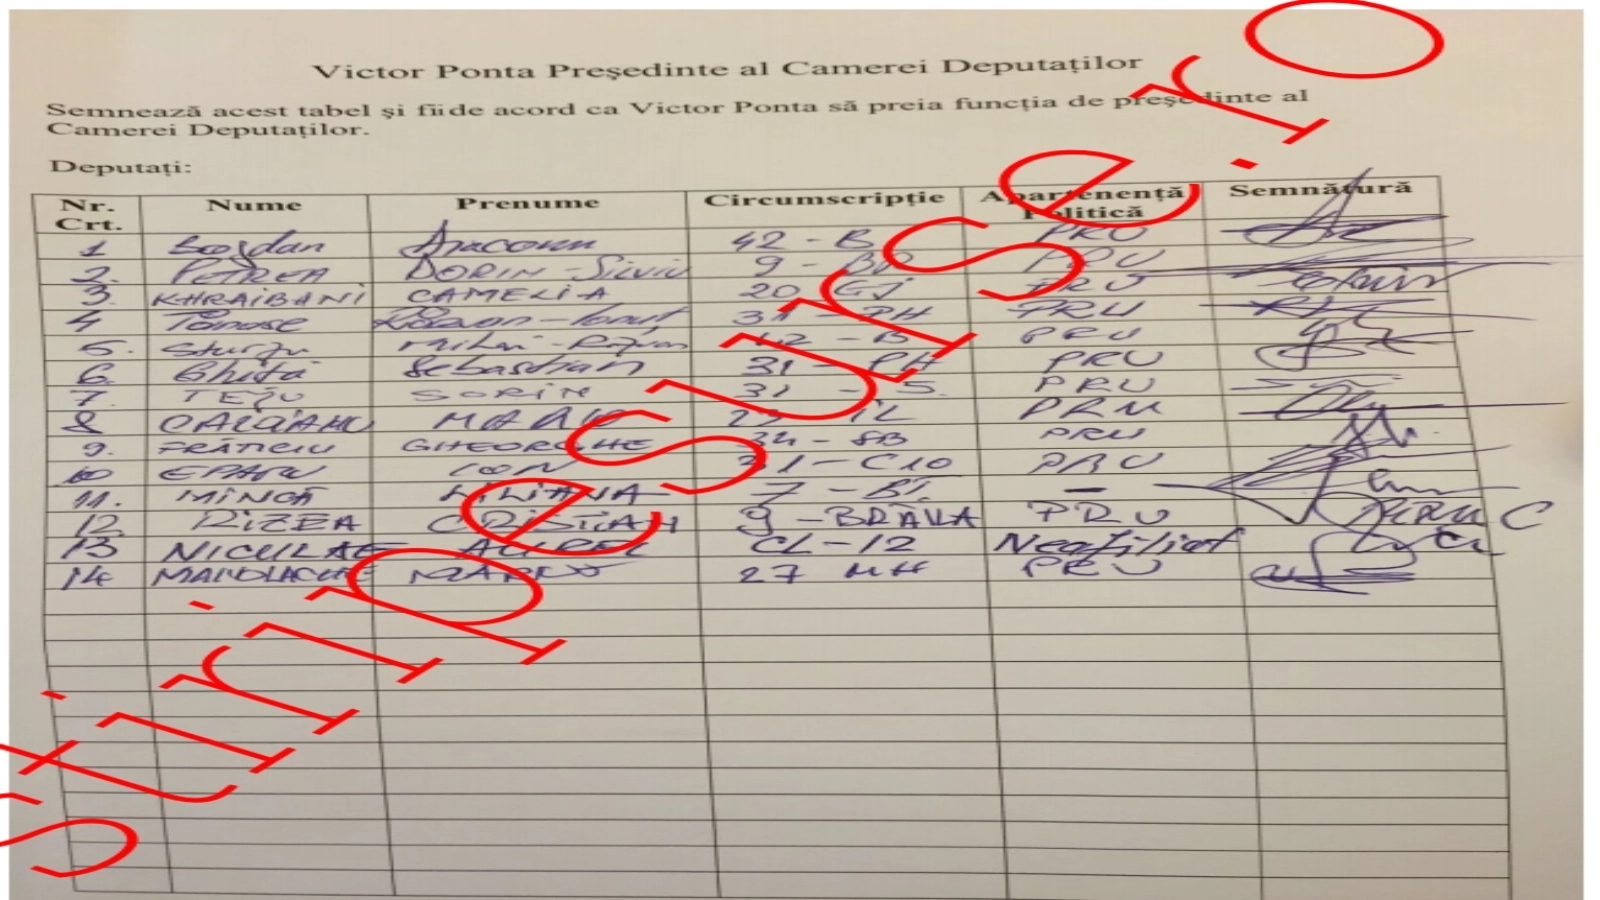 Victor Ponta Preşedinte al Camerei Deputaţilor
Semnează acest tabel şi fii de acord ca Victor Ponta să preia funcţia de preşedinte al
Camerei Deputaţilor.
Deputaţi:
Nr. Crt. Nume Prenume Circumscripţie Apartenenţă Politică Semnătură
1 Bogdan 42 - B PRU
2. PETREA DORIN - Silviu 9 - BR PRU
3. KHRAIBANI CAMELIA 20 GJ PRU
4 Tănase Răzvan - Ionuţ 31 - PH PRU
5. Sturzu Mihai - Răzvan 42 - B PRU
6. Ghiţă Sebastian 31 - PH PRU
7. TEJU SORIN 31 - S. PRU
8 MARIO 23 IL PRU
9. FRĂTICIU GHEORGHE 34 - SB PRU
10 EPARU ION PRU
11. MINCĂ LILIANA 7 - BT. -
12. RIZEA CRISTIAN 9 - BRĂILA PRU
13 NICULAE AUREL CL - 12 Neafiliat
14 MANOLACHE MARIUS 27 MH PRU
stiripesurse.ro